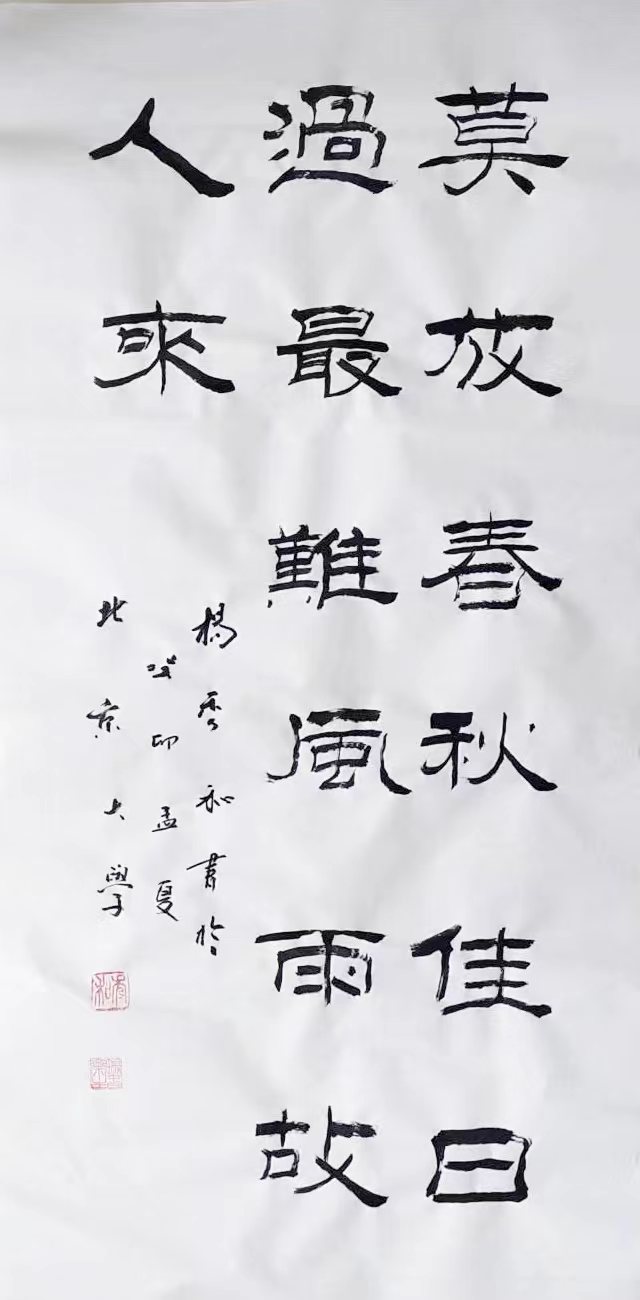 莫放春秋佳日
過最難風雨故
人來
楊秀和書於
癸卯孟夏
北京大學